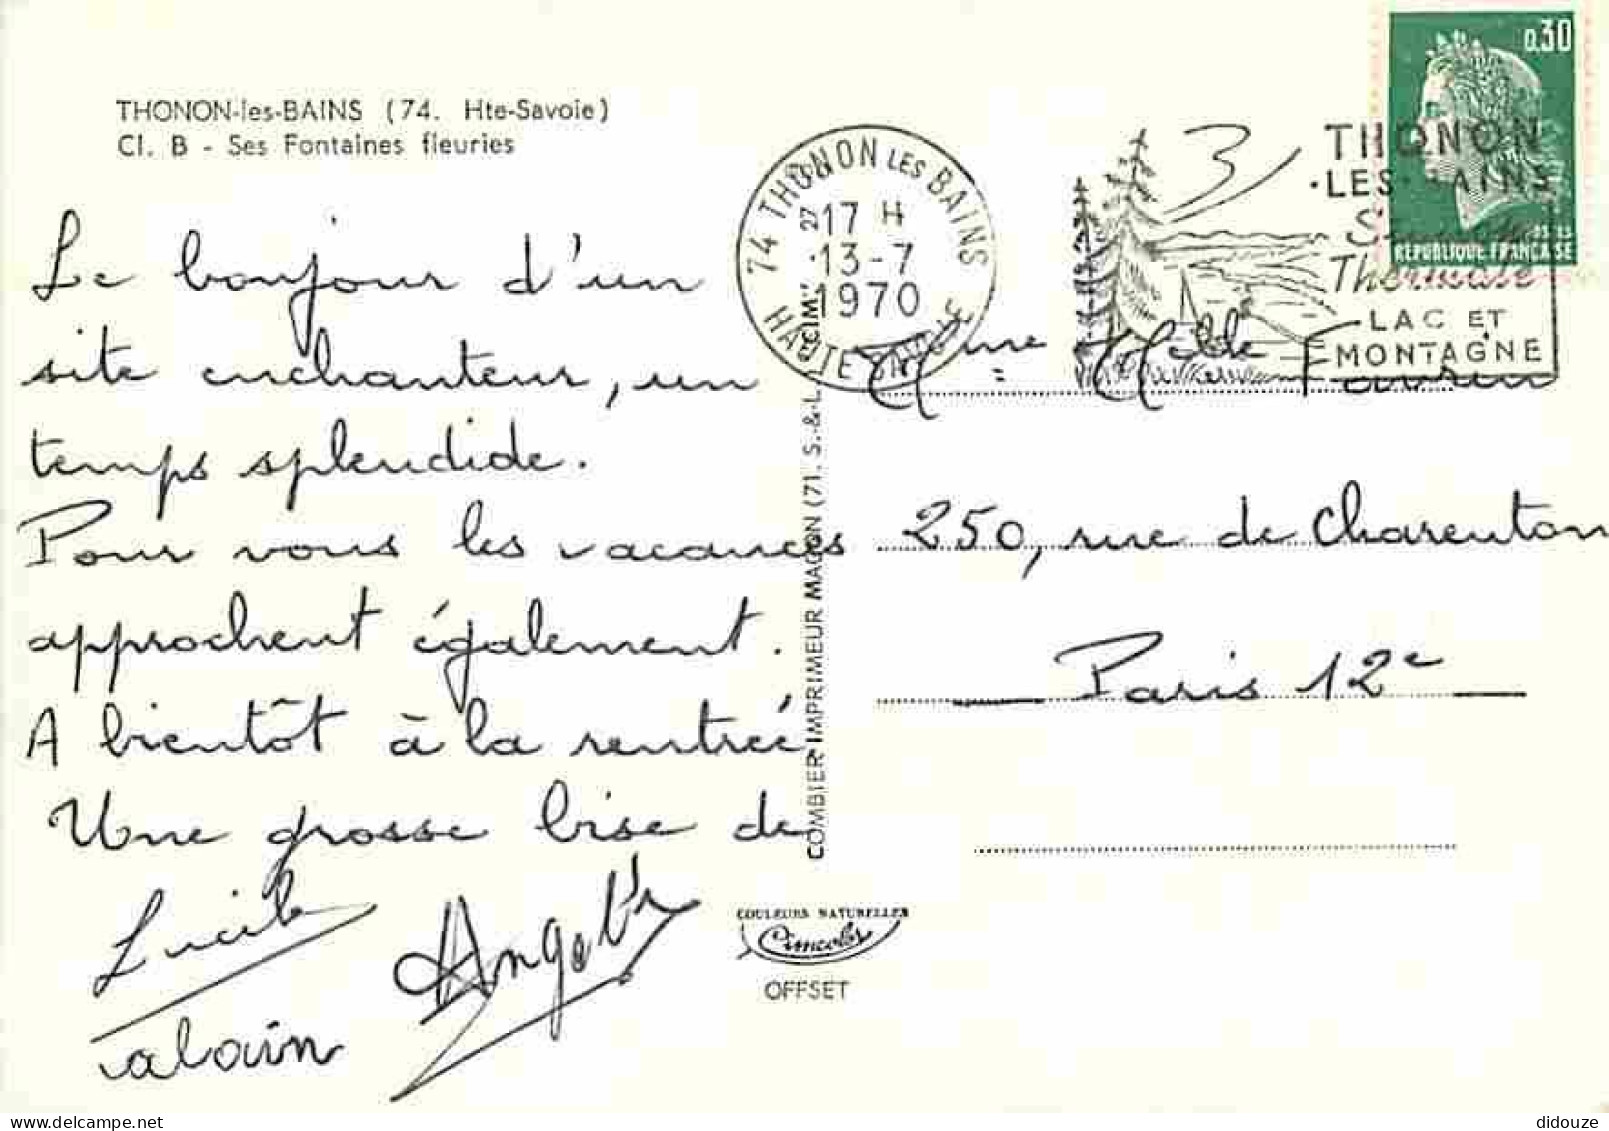 THONON-les-BAINS (74. Hte-Savoie)
Cl. B - Ses Fontaines fleuries
Le bonjour d'un
site enchanteur, un
temps splendide.
Pour vous les vacances
approchent également.
A bientôt à la rentrée
Une grosse bise de
Lucile
Alain
COMBIER IMPRIMEUR MACON (71. S.-&-L.
CIM
COULEURS NATURELLES
Cimcolor
OFFSET
74 THONON LES BAINS
17 H
13-7
1970
HAUTE SAVOIE
THONON
·LES·BAINS
Thermale
LAC ET
MONTAGNE
0.30
POSTES
REPUBLIQUE FRANÇAISE
250, rue de Charenton
Paris 12e
www.delcampe.net
didouze